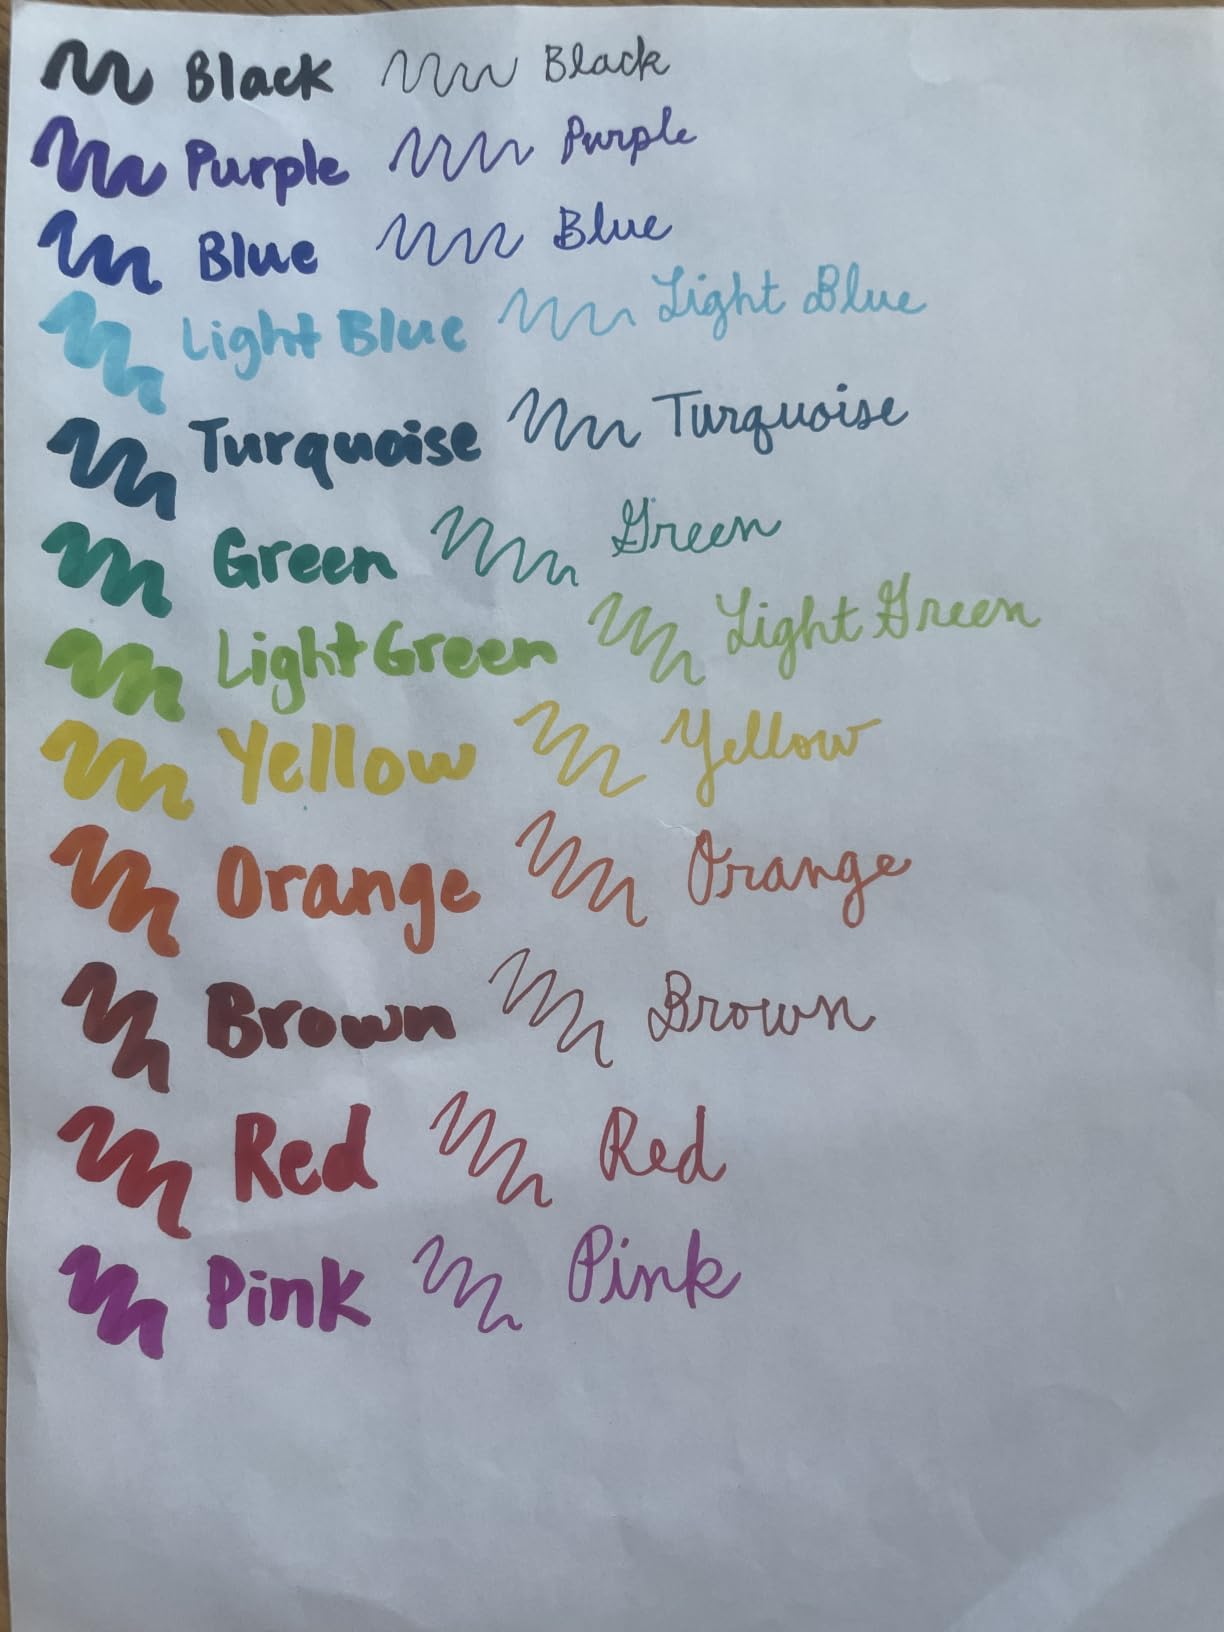 Black Black
Purple Purple
Blue Blue
Light Blue Light Blue
Turquoise Turquoise
Green Green
Light Green Light Green
Yellow Yellow
Orange Orange
Brown Brown
Red Red
Pink Pink